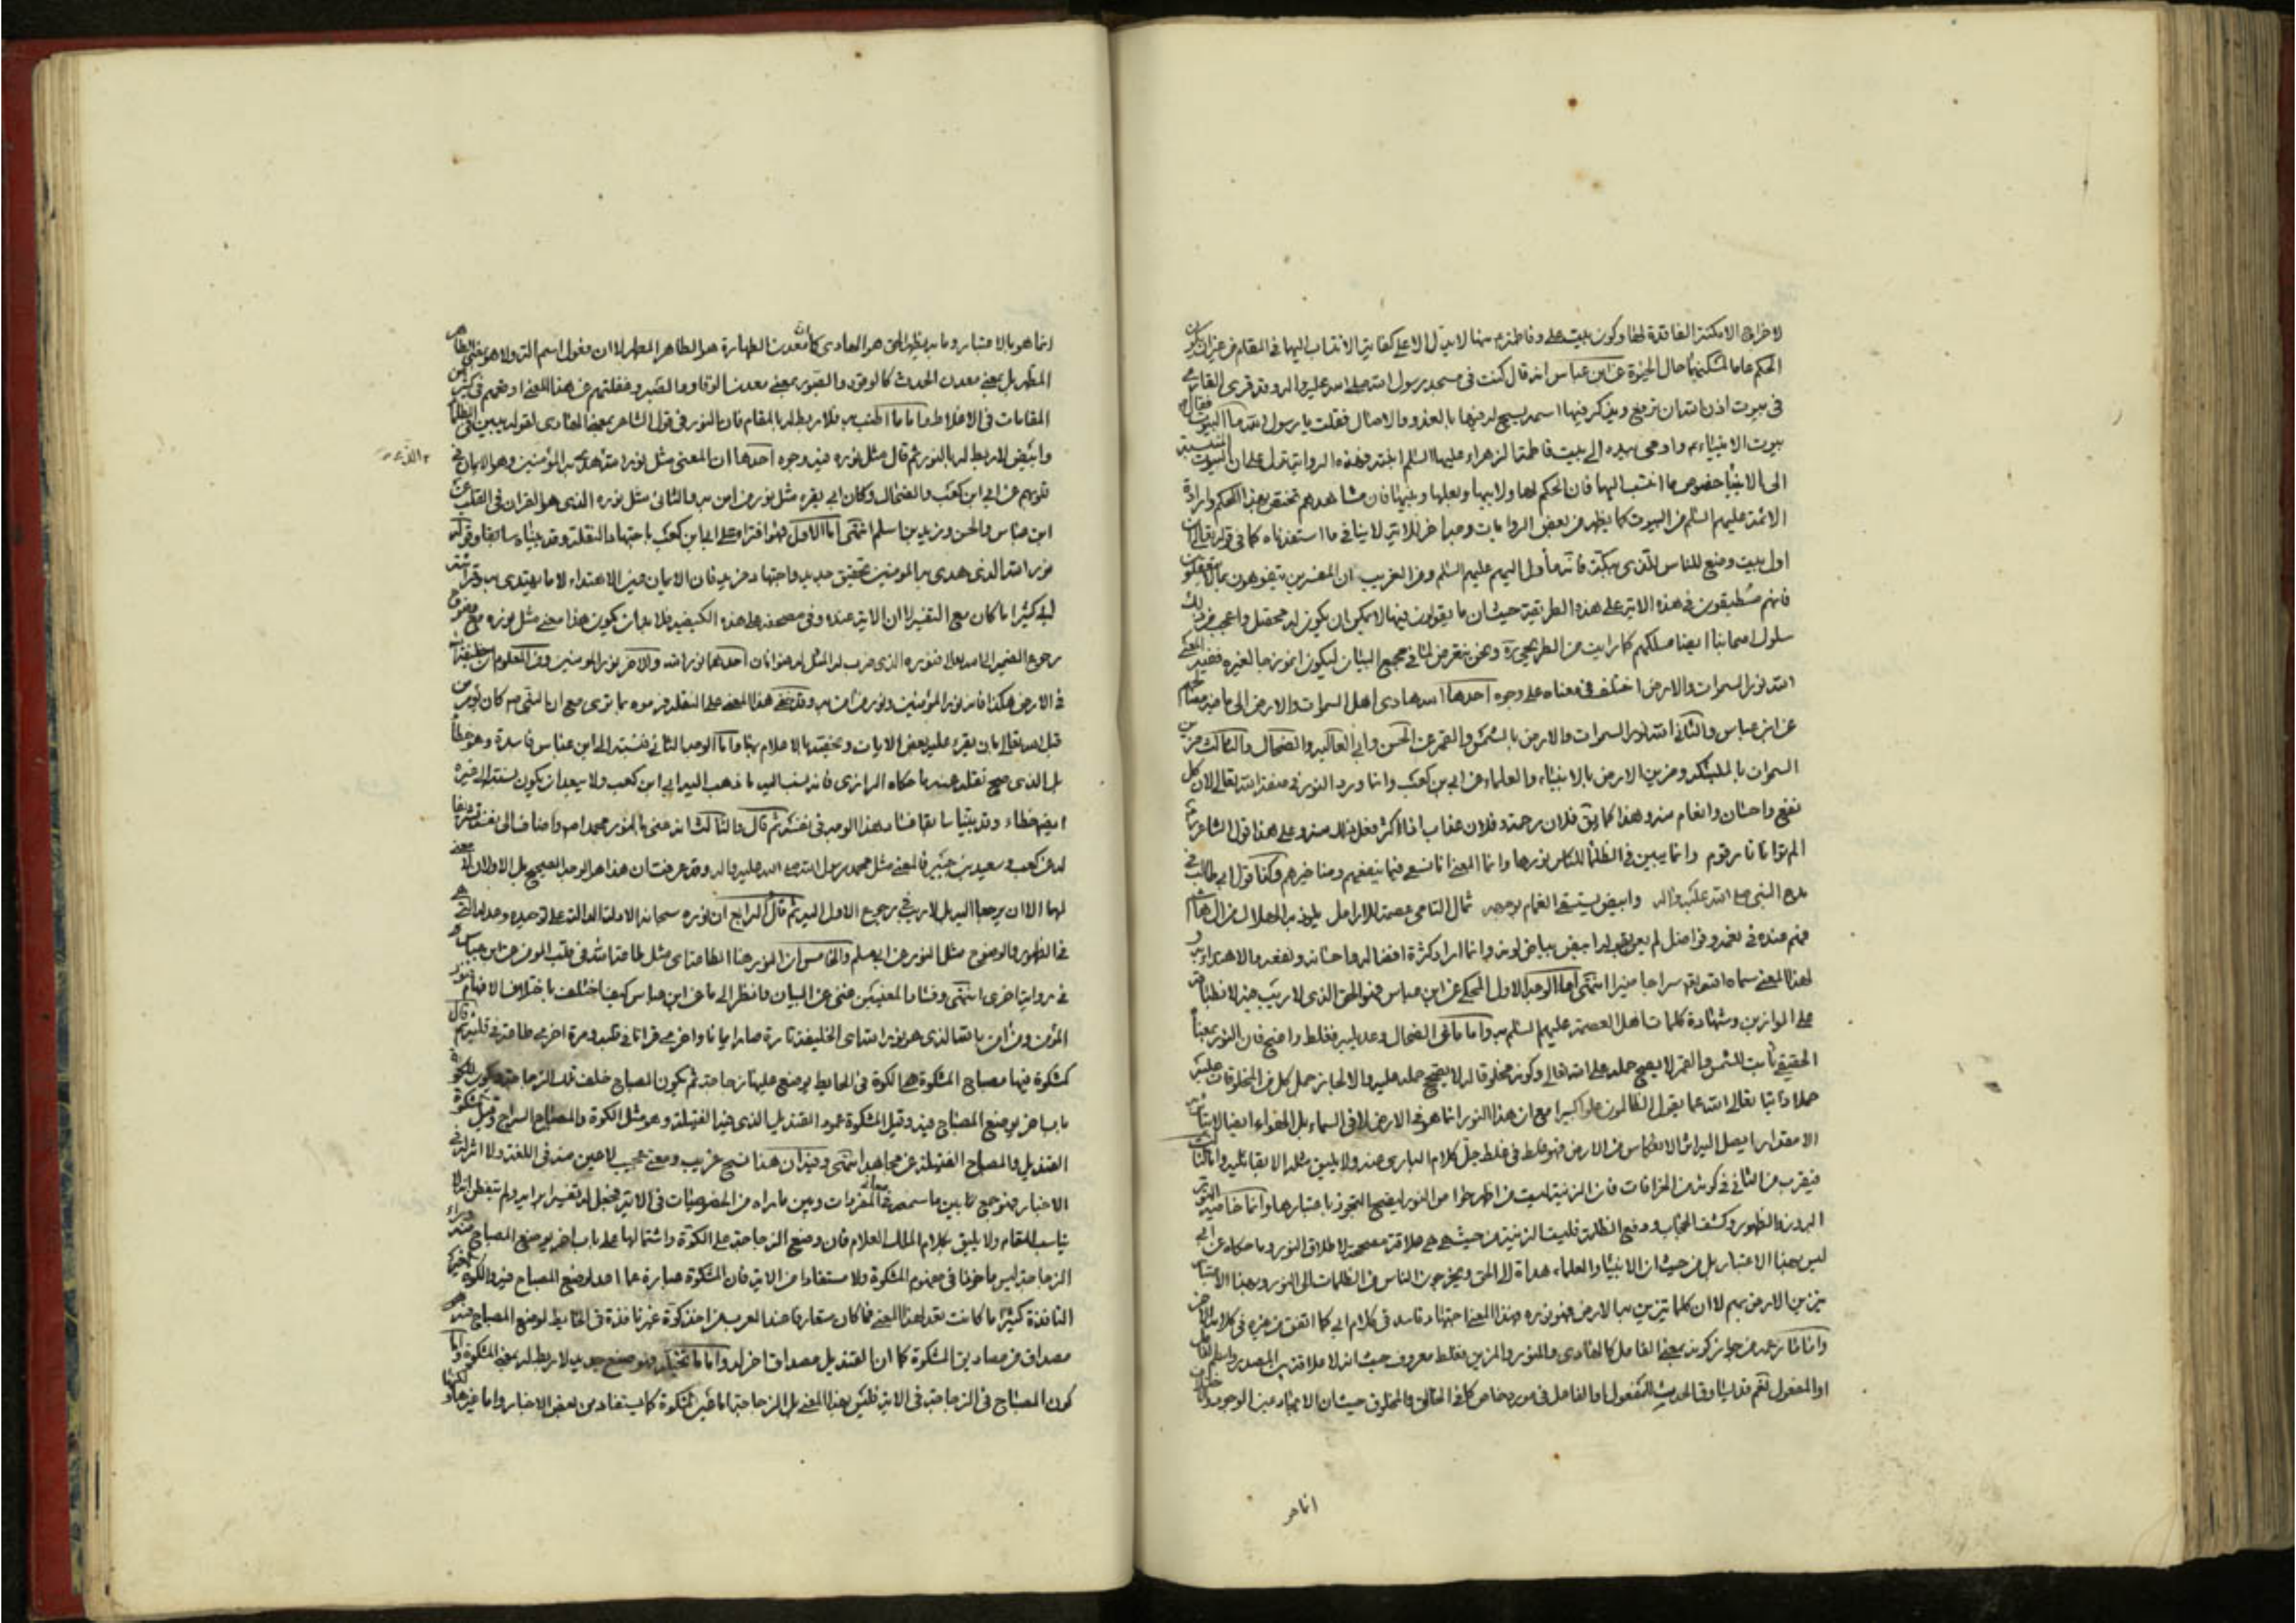 لاخراج الامكنة الفاقدة لها وكون بيت علي وفاطمة منها لا يدل الا على كفاية الانتساب اليها في المقام
الحكم عن ابن عباس انه قال كنت في مسجد رسول الله صلى الله عليه واله وقد قرئ القارئ
في بيوت اذن الله ان ترفع ويذكر فيها اسمه يسبح له فيها بالغدو والاصال فقلت يا رسول الله ما البيوت فقال
بيوت الانبياء واومى بيده الى بيت فاطمة الزهراء عليها السلم فهذه الرواية تدل على ان
الى الانبياء خصوص ما انتسب اليها فان الحكم لها ولابيها وبعلها وبنيها فان مشاهدهم تختص بهذا الحكم وارادة
الائمة عليهم السلم من البيوت كما يظهر من بعض الروايات وجه اخر للاية لا ينافي ما استفدناه كما في قوله تعالى ان
اول بيت وضع للناس للذي ببكة فانه مأول اليهم عليهم السلم ومن الغريب ان المفسرين يتفوهون بما لا يتعقلون
فانهم متطبقون في هذه الاية على هذه الطريقة حيث ان ما يقولون فيها لا يمكن ان يكون له محصل واعجب من ذلك
سلوك اصحابنا ايضا مسلكهم كما رايت من الطريحي ره ونحن نتعرض لما في مجمع البيان ليكون انموزجا لغيره ففيه
الله نور السموات والارض اختلف في معناه على وجوه احدها الله هادي اهل السموات والارض الى ما فيه مصالحهم
عن ابن عباس والثاني الله نور السموات والارض بالشمس والقمر عن الحسن وابي العالية والضحاك والثالث مزين
السموات بالملئكة ومزين الارض بالانبياء والعلماء عن ابي بن كعب وانما ورد النور في صفة الله تعالى لان كل
نفع واحسان وانعام منه وهذا كما يق فلان رحمة وفلان عذاب اذا اكثر فعل ذلك منه وعلى هذا قول الشاعر
الم تر انا نور قوم وانما يبين في الظلماء للناس نورها وانما المعنى انا نسعى فيما ينفعهم ومنا خيرهم وكذا قول ابي طالب في
مدح النبي صلى الله عليه واله وابيض يستسقى الغمام بوجهه ثمال اليتامى عصمة للارامل يلوذ به الهلاك من ال هاشم
فهم عنده في نعمة وفواضل لم يعن بقوله ابيض بياض لونه وانما اراد كثرة افضاله واحسانه ونفعه والاهتداء به و
لهذا المعنى سماه الله تعالى سراجا منيرا انتهى اما الوجه الاول المحكي عن ابن عباس فهو الحق الذي لا ريب فيه لانطباقه
على الموازين وشهادة كلمات اهل العصمة عليهم السلم به واما ما عن الضحاك وعديليه فغلط واضح فان النور بمعناه
الحقيقي ثابت للشمس والقمر لا يصح حمله على الله تعالى وكونه مخلوقا له لا يصحح حمله عليه والا لجاز حمل كل من المخلوقات عليه
حملا ذاتيا تعالى الله عما يقول الظالمون علوا كبيرا مع ان هذا النور انما هو في الارض لا في السماء بل الهواء ايضا
الا مقدار ما يصل اليه اثر الانعكاس من الارض فهو غلط في غلط جل كلام الباري عنه ولا يليق مثله الا بقائليه واما الثالث
فيقرب من الثاني في كونه من الخرافات فان الزينة ليست من اظهر خواص النور ليصح التجوز باعتبارها وانما خاصية النور
البروز والظهور وكشف الحجاب ودفع الظلمة فليست الزينة من حيث هي هي علاقة مصححة لاطلاق النور وما حكاه عن ابي
ليس بهذا الاعتبار بل من حيث ان الانبياء والعلماء هداة الى الحق ويخرجون الناس من الظلمات الى النور وبهذا الاعتبار
تزين الارض بهم لا ان كلما تزين به الارض فهو نوره فهذا المعنى اجتهاد فاسد في كلام ابي كما اتفق من غيره في كلام
واما ما زعمه من جواز كونه بمعنى الفاعل كالهادي والمنور والمزين فغلط معروف حيث انه لا علاقة بين المصدر واسم الفاعل
او المفعول نعم قد يشاوق الحدث المفعول او الفاعل في مورد خاص كما في الخالق والمخلوق حيث ان الايجاد عين الوجود
انما هو
انما هو بالاعتبار وما به يظهر الحق هو الهادي كما ان معدن الطهارة هو الطاهر المطهر لا ان مفعول اسم الله ولا هو بمعنى الطاهر
المطهر بل بمعنى معدن الحدث كالوقود والصبور بمعنى معدن الوقاد والصبر وغفلتهم عن هذا المعنى اوقعهم في كثير من
المقامات في الاغلاط واما ما اطنب به فلا ربط له بالمقام فان النور في قول الشاعر بمعنى الهادي لقوله يبين في الظلماء
وابيض لا ربط له بالنور ثم قال مثل نوره فيه وجوه احدها ان المعنى مثل نور الله الذي هدى به المؤمنين وهو الايمان في
قلوبهم عن ابي ابن كعب والضحاك وكان ابي يقرء مثل نور من امن به والثاني مثل نوره الذي هو القران في القلب عن
ابن عباس والحسن وزيد بن اسلم انتهى اما الاول فهو افتراء على ابي ابن كعب باجتهاد النقلة وقد بيناه سابقا وقوله
نور الله الذي هدى به المؤمنين تحقيق جديد واجتهاد مزيد فان الايمان عين الاهتداء لا ما يهتدى به وقراءة
ابي كثيرا ما كان مع التفسير لا ان الاية عنده وفي مصحفه على هذه الكيفية فلا بد ان يكون هذا معنى مثل نوره مع
رجوع الضمير الى الله تعالى فنوره الذي ضرب له المثل له عنوانان احدهما نور الله والاخر نور المؤمنين ومن المعلوم ان خليفة الله
في الارض هكذا فانه نور المؤمنين ونور من امن به وقد خفي هذا المعنى على النقلة فزعموه ما ترى مع ان النبي ص كان يؤمر من
قبل الله تعالى بان يقرء عليه بعض الايات ويخصه بالاعلام بها واما الوجه الثاني فنسبته الى ابن عباس فاسدة وهو خطأ
بل الذي صح نقله عنه ما حكاه الرازي فانه ينسب اليه ما ذهب اليه ابي ابن كعب ولا يبعد ان يكون نسبته الى غيره
ايضا خطاء وقد بينا سابقا فساد هذا الوجه في نفسه ثم قال والثالث انه عنى بالنور محمدا ص واضافه الى نفسه تشريفا
له عن كعب وسعيد بن جبير فالمعنى مثل محمد رسول الله صلى الله عليه واله وقد عرفت ان هذا هو الوجه الصحيح بل الاولان لا معنى
لهما الا ان يرجعا اليه بل لا ريب في رجوع الاول اليه ثم قال الرابع ان نوره سبحانه الادلة الدالة على توحيده وعدله التي هي
في الظهور والوضوح مثل النور عن ابي مسلم والخامس ان النور هنا الطاعة اي مثل طاعة الله في قلب المؤمن عن ابن عباس
في رواية اخرى انتهى وفساد المعنيين غني عن البيان وانظر الى ما عن ابن عباس كيف اختلف باختلاف الافهام
المؤمن ومن امن بالله الذي هو نور الله اي الخليفة تارة صار ايمانا واخرى قرانا في قلبه ومرة اخرى طاعة في قلبه ثم قال
كمشكوة فيها مصباح المشكوة هي الكوة في الحايط يوضع عليها زجاجة ثم يكون المصباح خلف تلك الزجاجة ويكون للكوة
باب اخر يوضع المصباح فيه وقيل المشكوة عمود القنديل الذي فيه الفتيلة وهو مثل الكوة والمصباح السراج وقيل المشكوة
القنديل والمصباح الفتيلة عن مجاهد انتهى وفيه ان هذا نسج غريب ومعنى عجيب لا عين منه في اللغة ولا اثر له في
الاخبار فهو جمع ما بين ما سمعه في معنى المفردات وبين ما يراه من الخصوصيات في الاية فجعل له تفسيرا برايه ولم يتفطن انه لا
يناسب المقام ولا يليق بكلام الملك العلام فان وضع الزجاجة على الكوة واشتمالها على باب اخر يوضع المصباح منه وراء
الزجاجة ليس ماخوذا في مفهوم المشكوة ولا مستفادا من الاية فان المشكوة عبارة عما اعد لوضع المصباح فيه والكوة الغير
النافذة كثيرا ما كانت تعد لهذا المعنى فما كان متعارفا عند العرب من اخذ كوة غير نافذة في الحايط لوضع المصباح فيه
مصداق من مصاديق المشكوة كما ان القنديل مصداق اخر له واما ما تخيله فهو صنع جديد لا ربط له بمعنى المشكوة واما
كون المصباح في الزجاجة في الاية فليس بهذا المعنى بل الزجاجة اما عين المشكوة كما يستفاد من بعض الاخبار واما غيرها و